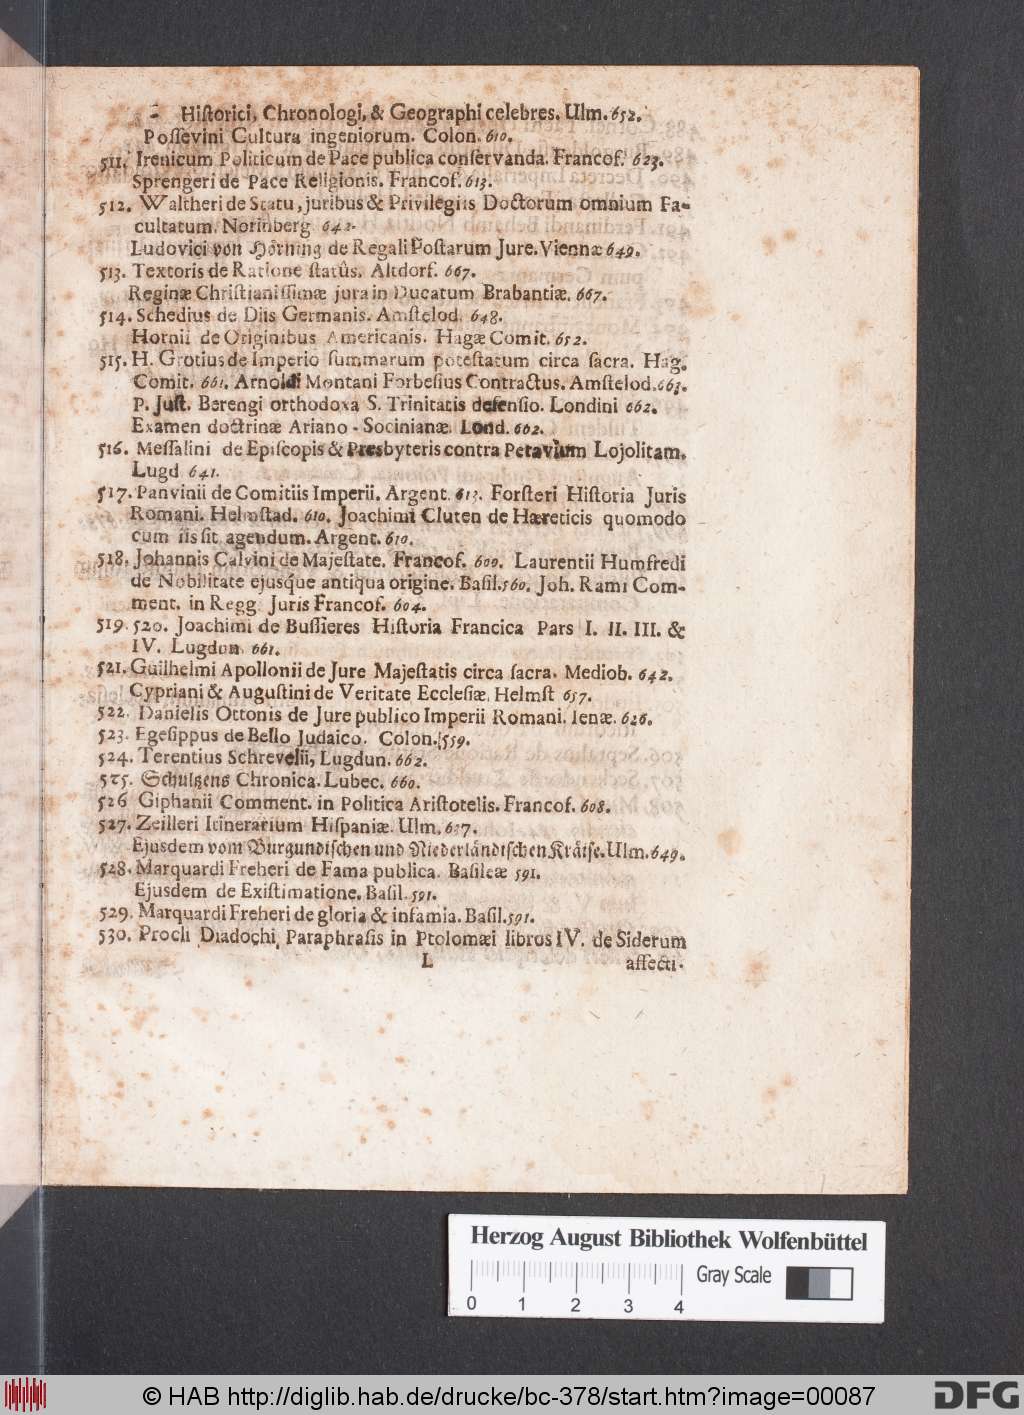 - Hiſtorici, Chronologi, & Geographi celebres. Ulm. 652.
Poſſevini Cultura ingeniorum. Colon. 610.
511. Irenicum Politicum de Pace publica conſervanda. Francof. 623.
Sprengeri de Pace Religionis. Francof. 613.
512. Waltheri de Statu, juribus & Privilegiis Doctorum omnium Fa-
cultatum. Norinberg 642.
Ludovici von Hörning de Regali Poſtarum Jure. Viennæ 649.
513. Textoris de Ratione ſtatûs. Altdorf. 667.
Reginæ Chriſtianiſſimæ jura in Ducatum Brabantiæ. 667.
514. Schedius de Diis Germanis. Amſtelod. 648.
Hornii de Originibus Americanis. Hagæ Comit. 652.
515. H. Grotius de Imperio ſummarum poteſtatum circa ſacra. Hag.
Comit. 661. Arnoldi Montani Forbeſius Contractus. Amſtelod. 663.
P. Juſt. Berengi orthodoxa S. Trinitatis defenſio. Londini 662.
Examen doctrinæ Ariano-Socinianæ. Lond. 662.
516. Meſſalini de Epiſcopis & Presbyteris contra Petavium Lojolitam.
Lugd 641.
517. Panvinii de Comitiis Imperii. Argent. 613. Forſteri Hiſtoria Juris
Romani. Helmſtad. 610. Joachimi Cluten de Hæreticis quomodo
cum iis ſit agendum. Argent. 610.
518. Johannis Calvini de Majeſtate. Francof. 609. Laurentii Humfredi
de Nobilitate ejusq́ue antiqua origine. Baſil. 560. Joh. Rami Com-
ment. in Regg. Juris Francof. 604.
519. 520. Joachimi de Buſſieres Hiſtoria Francica Pars I. II. III. &
IV. Lugdun. 661.
521. Guilhelmi Apollonii de Jure Majeſtatis circa ſacra. Mediob. 642.
Cypriani & Auguſtini de Veritate Eccleſiæ. Helmſt 657.
522. Danielis Ottonis de Jure publico Imperii Romani. Ienæ. 626.
523. Egeſippus de Bello Judaico. Colon. 559.
524. Terentius Schrevelii, Lugdun. 662.
525. Schultzens Chronica. Lubec. 660.
526 Giphanii Comment. in Politica Ariſtotelis. Francof. 608.
527. Zeilleri Itinerarium Hiſpaniæ. Ulm. 637.
Ejusdem vom Burgundiſchen und Niederländiſchen Kräiſe. Ulm. 649.
528. Marquardi Freheri de Fama publica. Baſileæ 591.
Ejusdem de Exiſtimatione. Baſil. 591.
529. Marquardi Freheri de gloria & infamia. Baſil. 591.
530. Procli Diadochi Paraphraſis in Ptolomæi libros IV. de Siderum
L affecti-
Herzog August Bibliothek Wolfenbüttel
Gray Scale
0 1 2 3 4
© HAB http://diglib.hab.de/drucke/bc-378/start.htm?image=00087
DFG